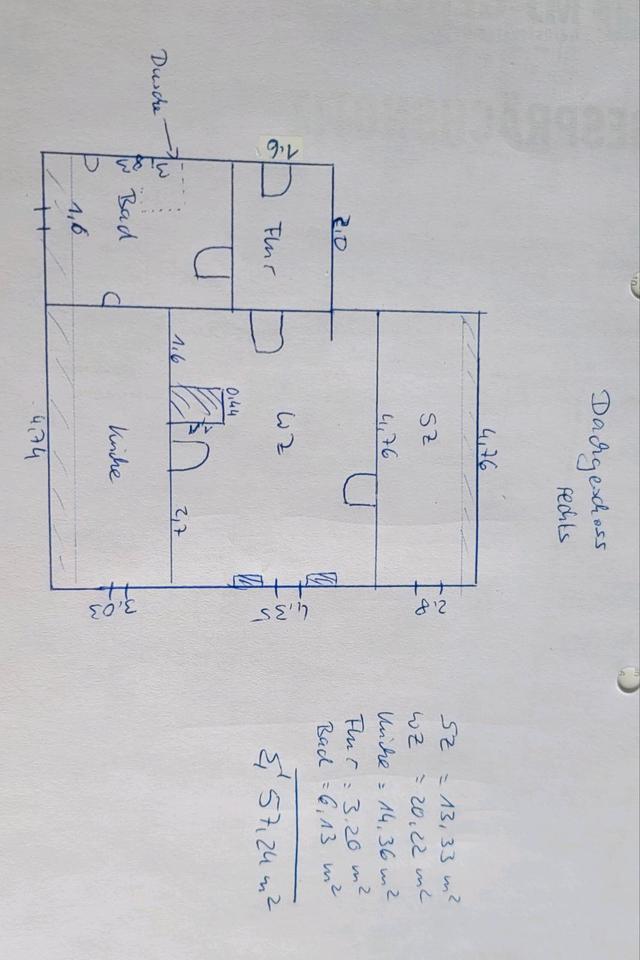 Dachgeschoss
rechts
4,76
SZ
2,8
4,76
2,0
1,6
Flur
WZ
4,35
0,44
1,6
2,7
Dusche
Bad
1,6
Küche
3,03
4,74
SZ = 13,33 m²
WZ = 20,22 m²
Küche = 14,36 m²
Flur = 3,20 m²
Bad = 6,13 m²
Σ 57,24 m²